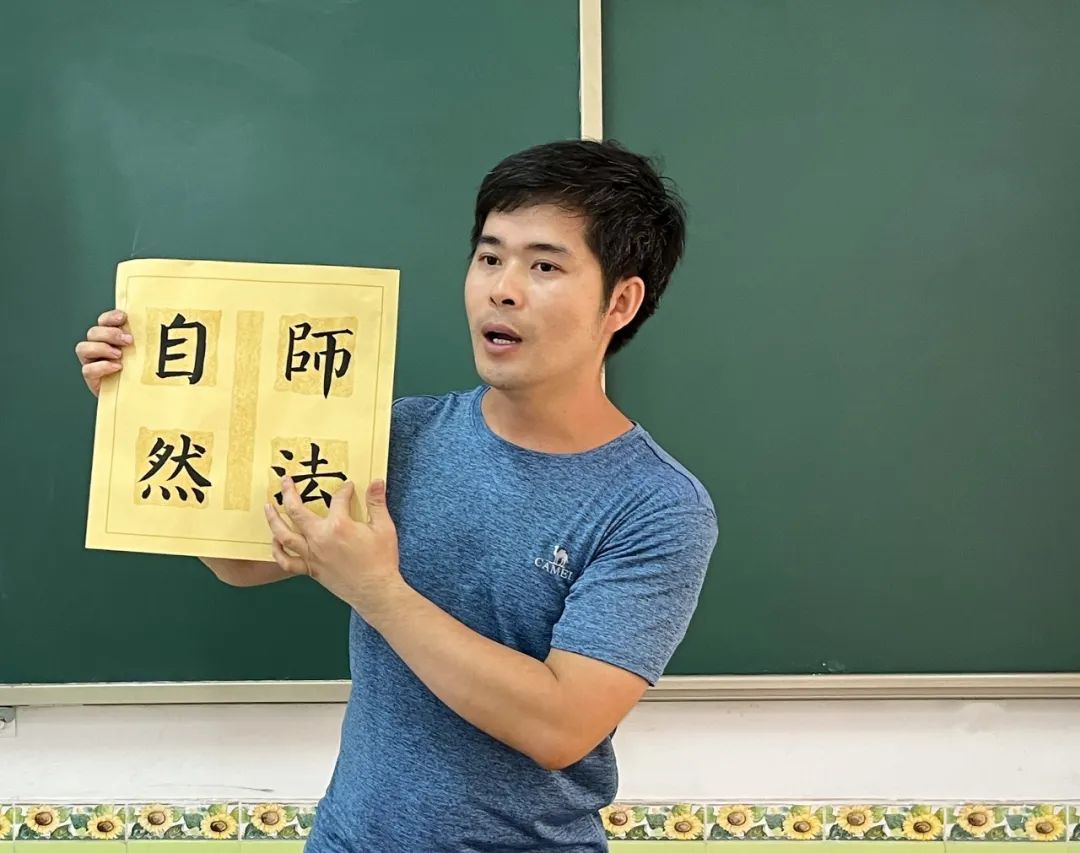 師法
自然
CAMEL